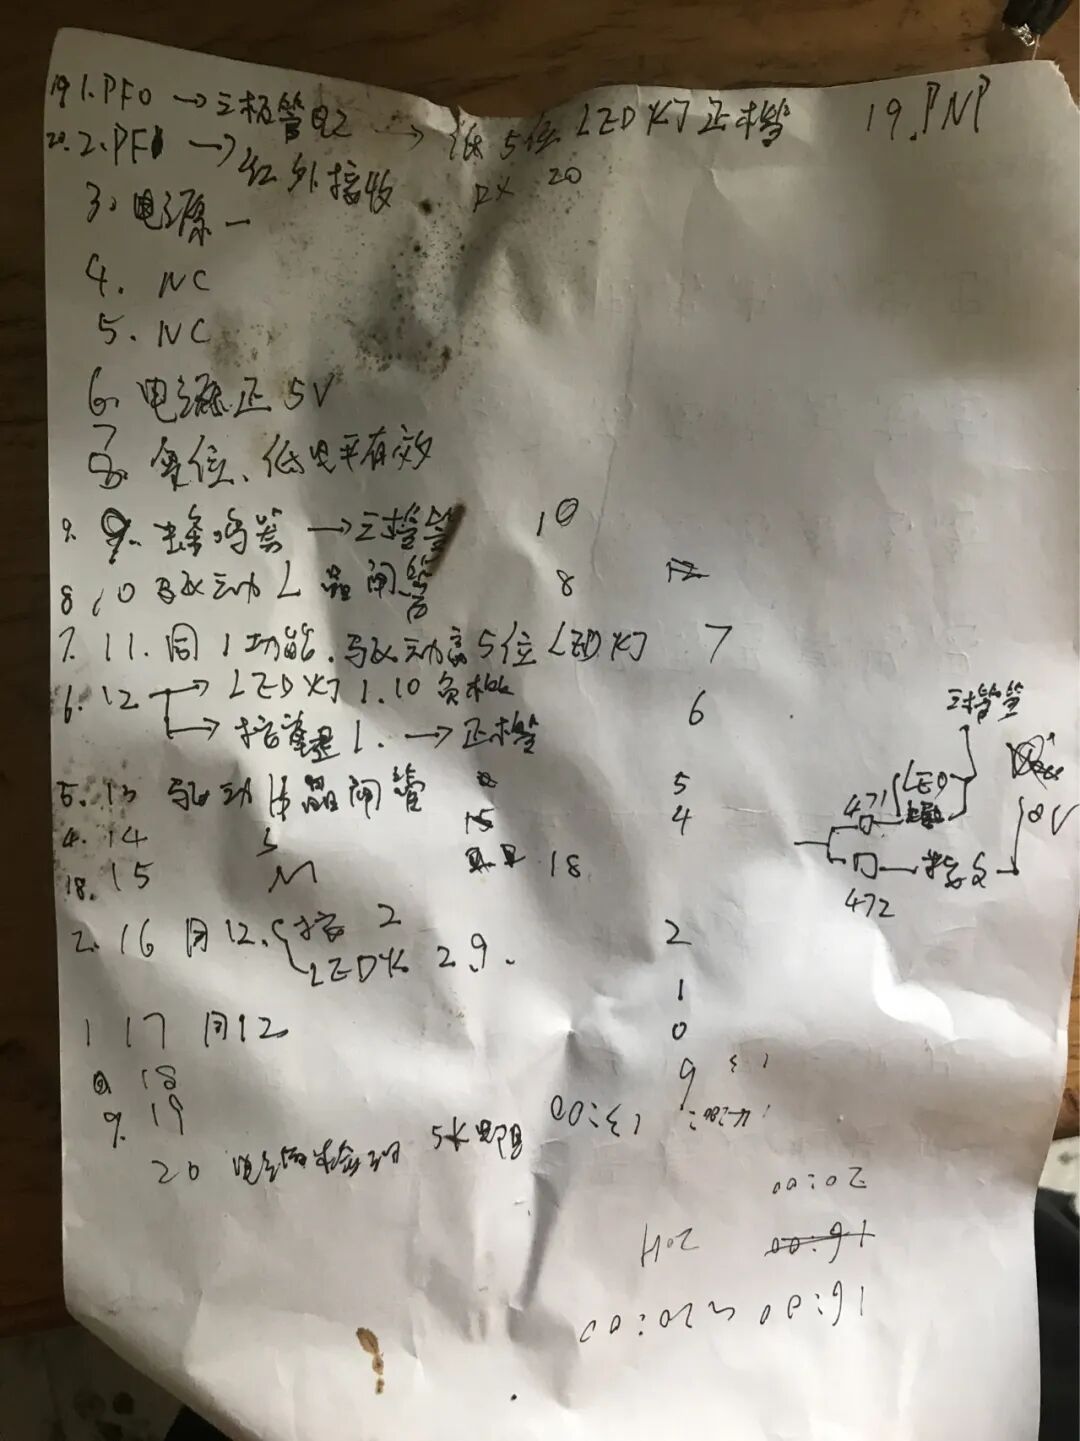 19 1.PF0 → 三极管Q2 → 低5位LED灯正极 19.PNP
20. 2.PF1 → 红外接收 RX 20
3. 电源-
4. NC
5. NC
6. 电源正5V
7
8. 复位、低电平有效
9. 9. 蜂鸣器 → 三极管 10
8 10 驱动L 晶闸管 8 12
7. 11. 同1功能.驱动高5位LED灯 7
6. 12 → LED灯1.10负极 6
→ 按键1. → 正极
三极管
5. 13 驱动H晶闸管 5
4. 14 S 15 4
471 LED
0V
18. 15 M 18
472
2. 16 同12. 按 2 2
LED灯 2.9.
1
1 17 同12 0
0 18 9
9. 19
20 电流检测 5K电阻
13:00
20:00
20H 16:00
16:00 ~ 20:00